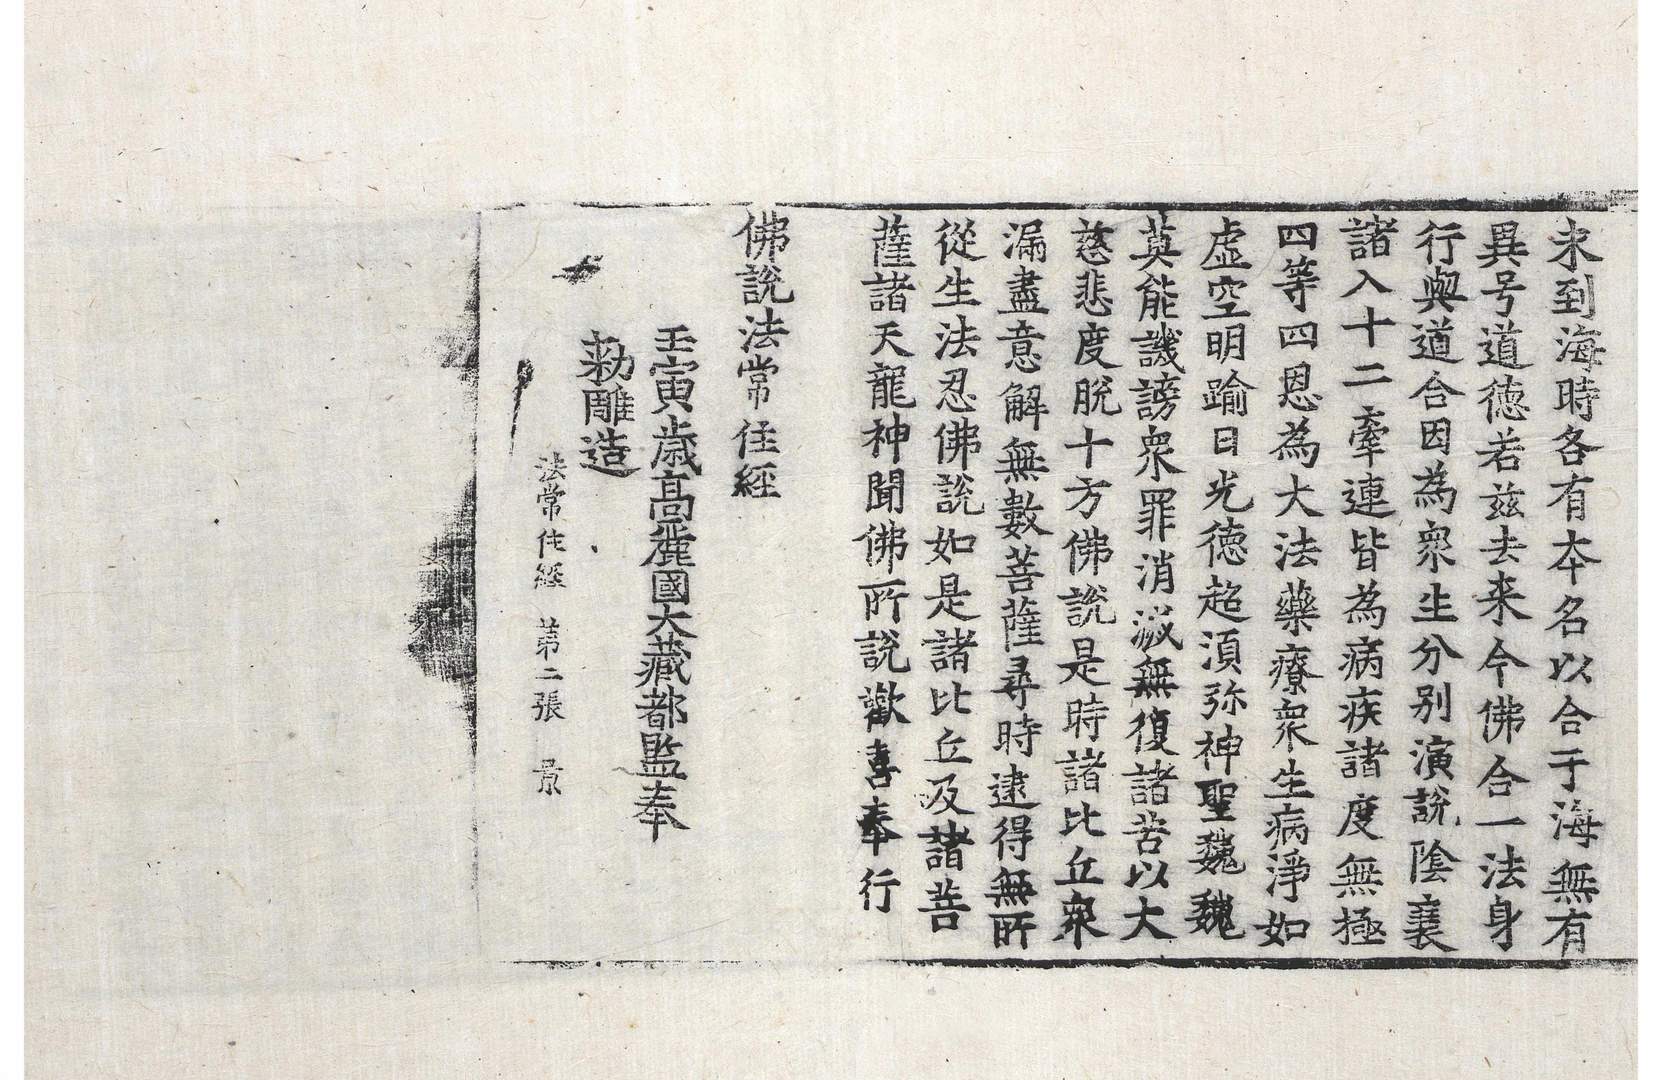 未到海時各有本名以合于海無有
異号道德若玆去来今佛合一法身
行與道合因為衆生分别演說陰衰
諸入十二牽連皆為病疾諸度無極
四等四恩為大法藥療衆生病淨如
虛空明踰日光德超湏弥神聖巍巍
莫能譏謗衆罪消滅無復諸苦以大
慈悲度脫十方佛說是時諸比丘衆
漏盡意解無數菩薩尋時逮得無所
從生法忍佛說如是諸比丘及諸菩
薩諸天龍神聞佛所說歡喜奉行
佛說法常住經
壬寅歲高麗國大藏都監奉
勅雕造
法常住經 第二張 景